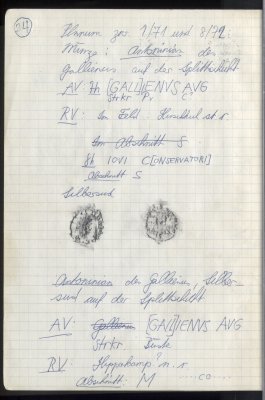 Planum zw. 1/71 und 8/72:
Münze: Antoninian des
Gallienus auf der Splittschicht
AV: [GALL]IENVS AVG
Strkr
RV: Im Feld Hirschkuh st r
Im Abschnitt S
IOVI C[ONSERVATORI]
Abschnitt S
Silbersud
Antoninian des Gallienus, Silber-
sud auf der Splittschicht
AV: Gallienus [GALL]IENVS AVG
Strkr Büste
RV: Hippokamp? n. r
Abschnitt: M